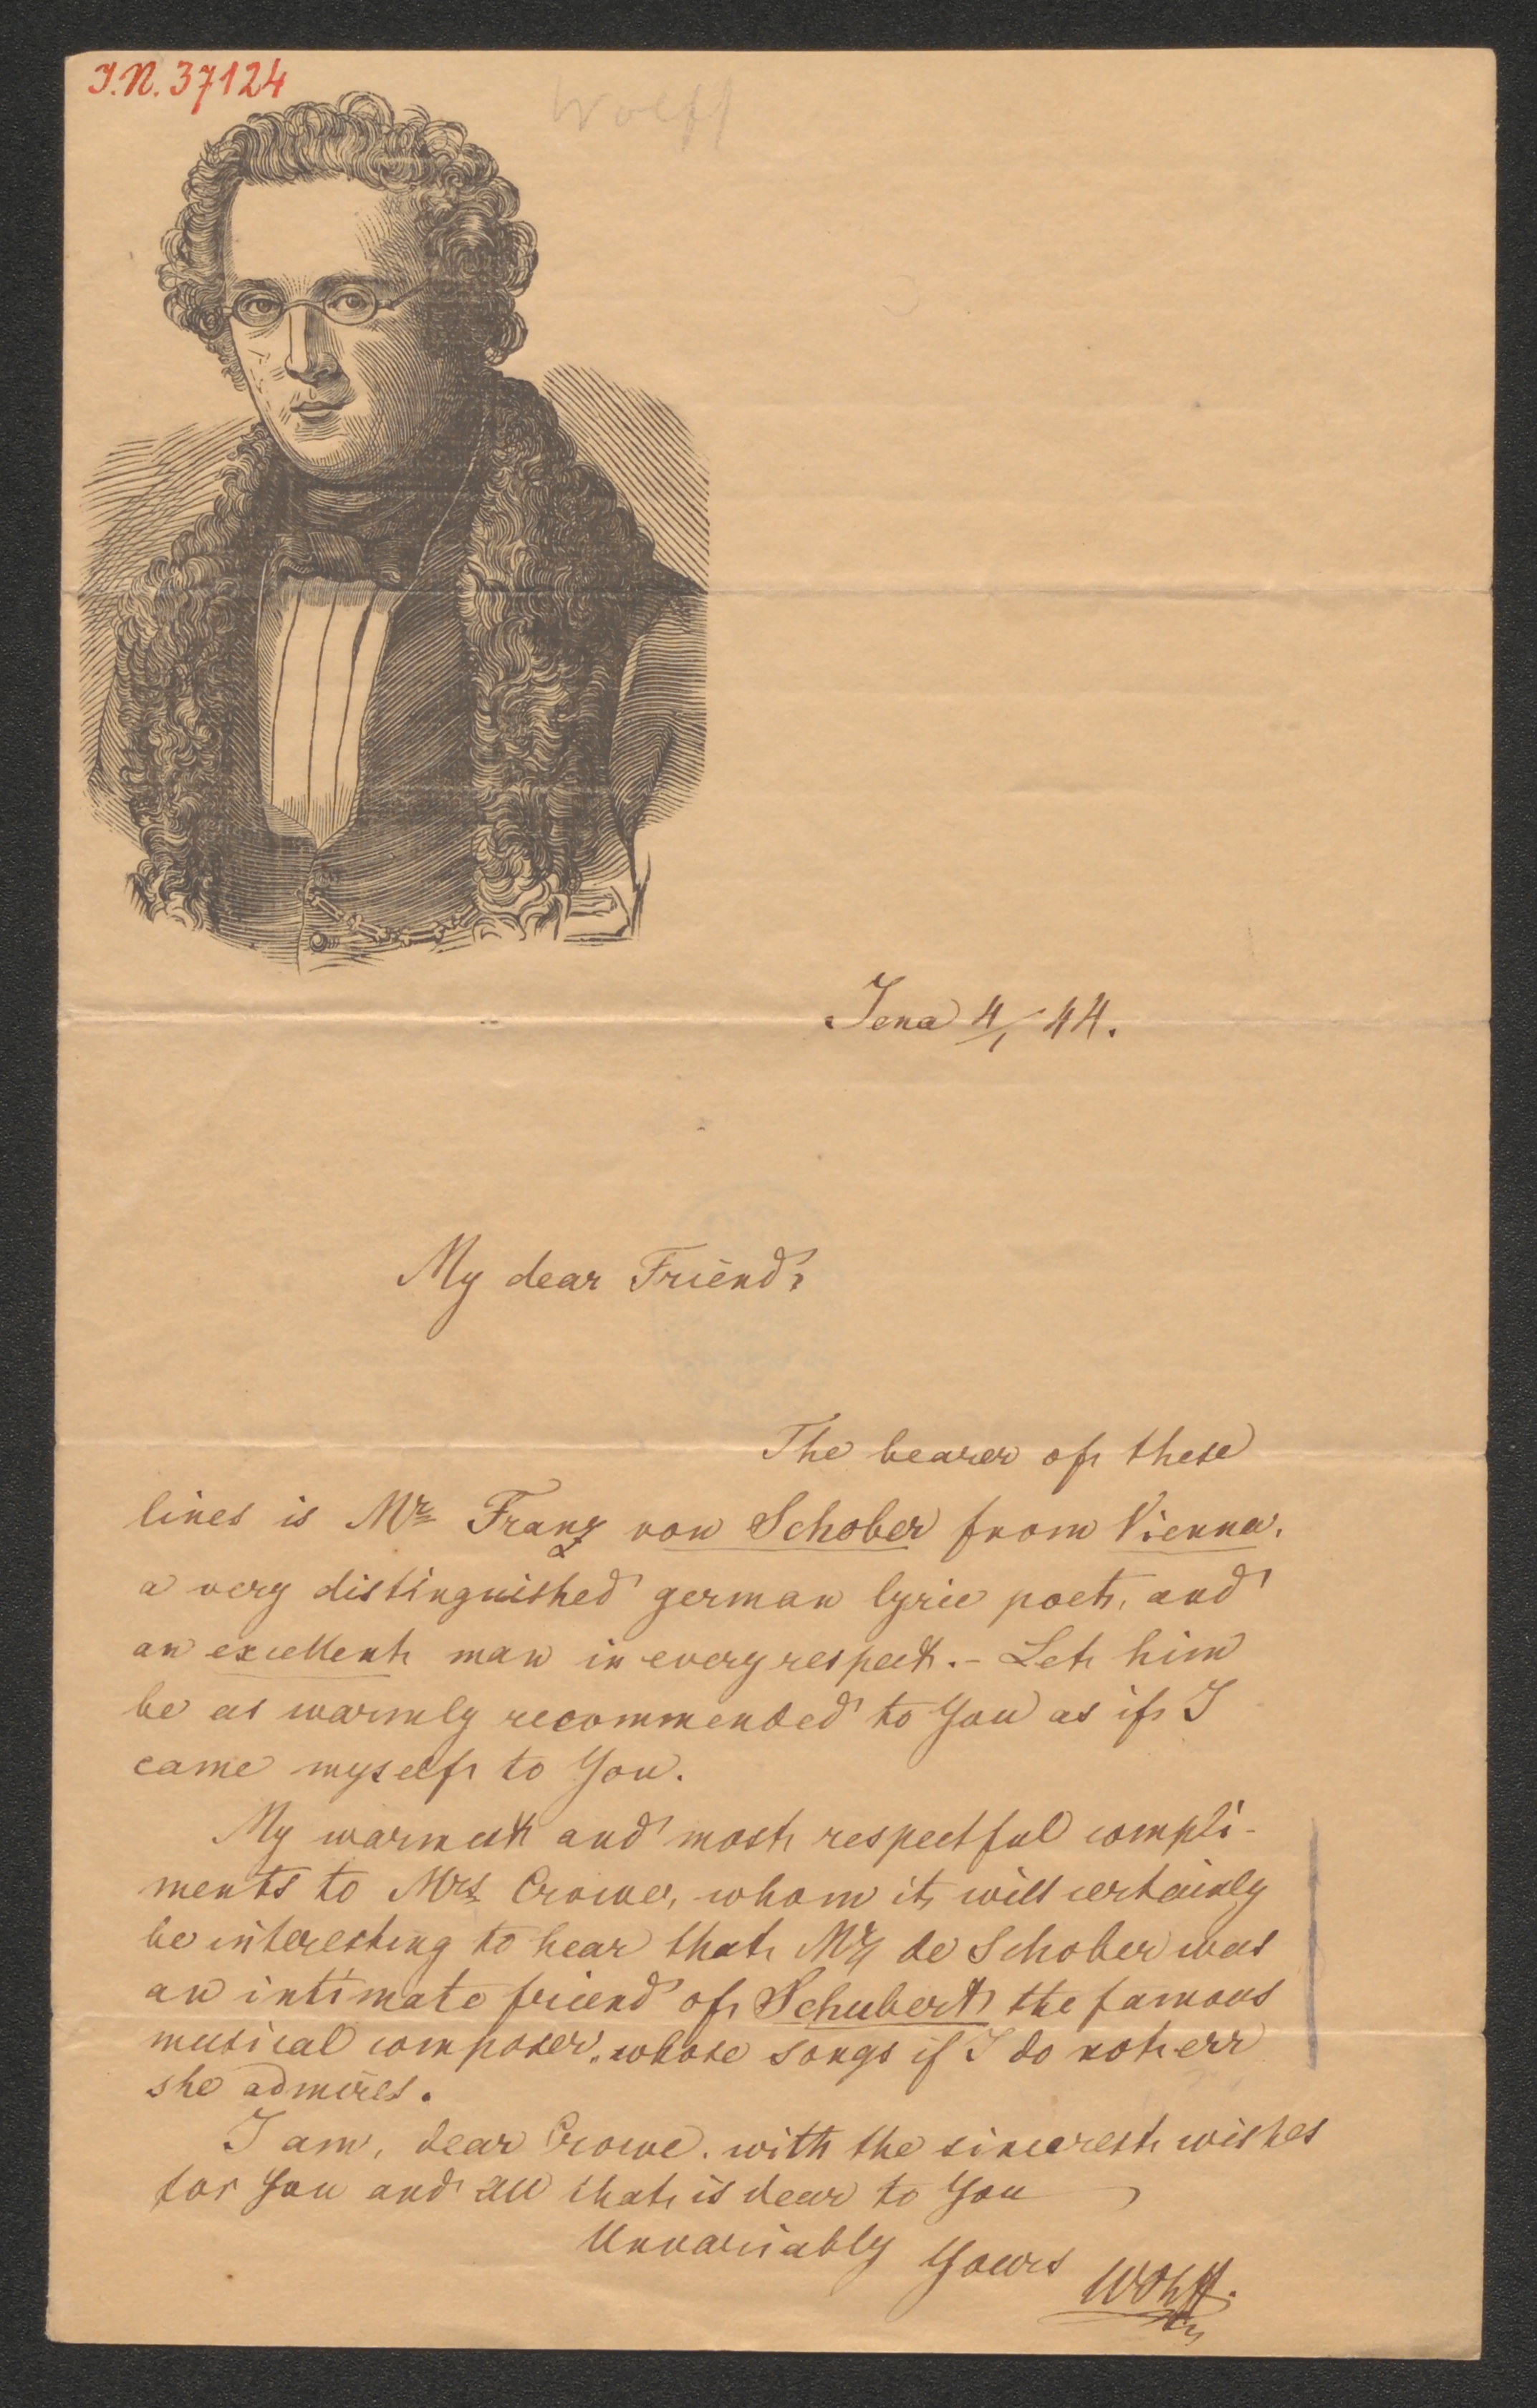 I.N. 37124
Wolff
Jena 4/1 44.
My dear Friend,
The bearer of these
lines is Mr Franz von Schober from Vienna,
a very distinguished german lyric poet, and
an excellent man in every respect. - Let him
be as warmly recommended to You as if I
came myself to You.
My warmest and most respectful compli-
ments to Mrs Crowe, whom it will certainly
be interesting to hear that Mr de Schober was
an intimate friend of Schubert the famous
musical composer, whose songs if I do not err
she admires.
I am, dear Crowe, with the sincerest wishes
for You and all that is dear to You
Unvariably Yours Wolff.